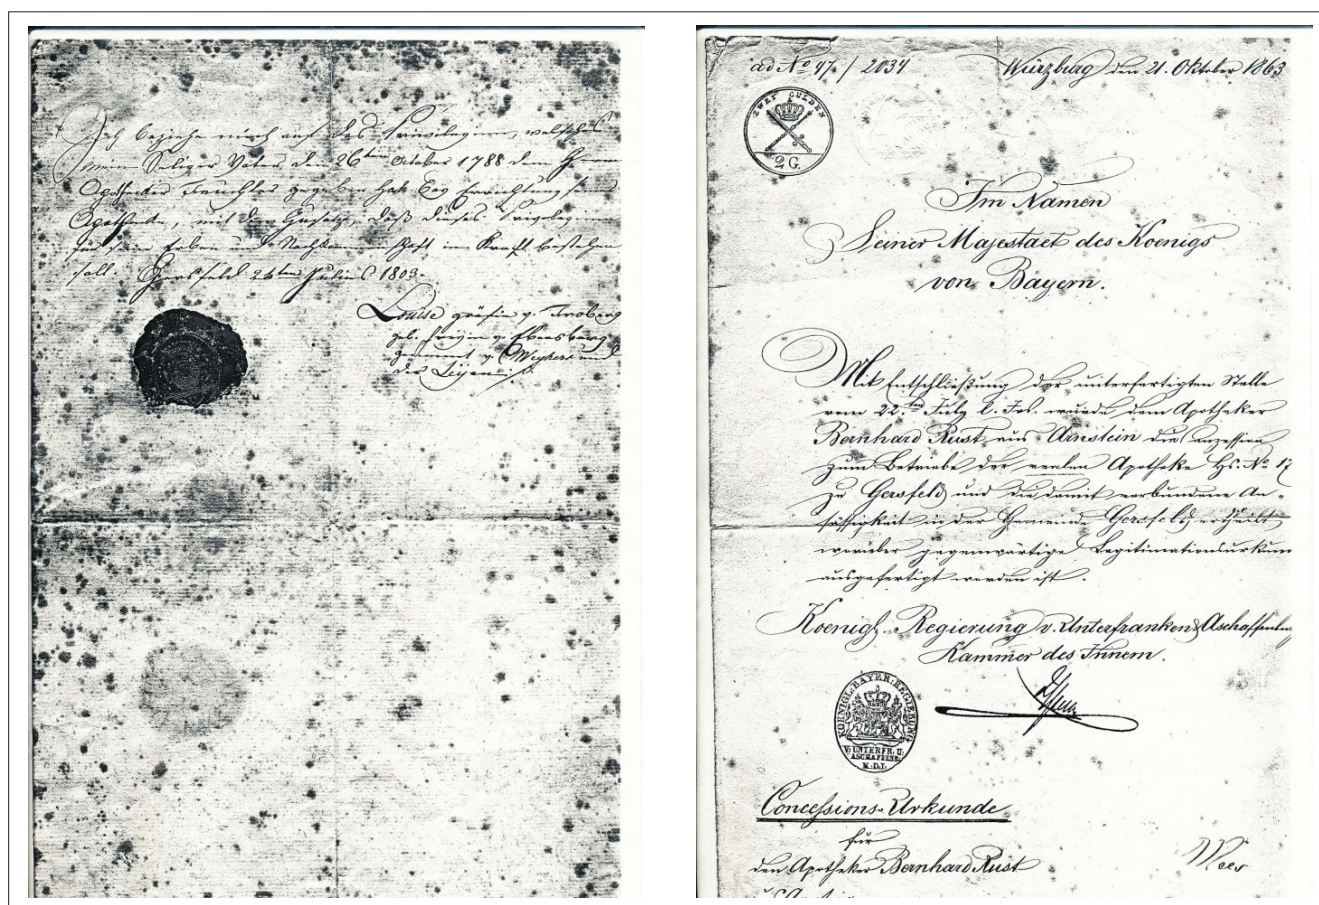 Ich beziehe mich auf das Privilegium, welches
mein Seliger Vater den 26ten October 1788 dem Herrn
Apotheker gegeben hat bey Errichtung seiner
Apotheke, mit dem Zusatz, daß dieses Privilegium
für seine Erben und Nachkommenschaft in Kraft bestehen
soll. Gersfeld 24ten 1803.
Louise gräfin v. Froberg
geb. freyin v. Ebersberg
genannt v. Weyhers und
der Leyen
ad No 47. / 2034
Würzburg den 21. Oktober 1863
ZWEY GULDEN
2 G.
Im Namen
Seiner Majestaet des Koenigs
von Bayern.
Mit Entschließung der unterfertigten Stelle
vom 22.ten July l. Irs. wurde dem Apotheker
Bernhard Rust aus Arnstein die Conzession
zum Betriebe der realen Apotheke Hs. No 17
zu Gersfeld und die damit verbundene An-
sässigkeit in der Gemeinde Gersfeld ertheilt
worüber gegenwärtige Legitimationsurkun
ausgefertigt worden ist.
Koenigl. Regierung v. Unterfranken & Aschaffenburg
Kammer des Innern.
KOENIGL. BAYER. REGIERUNG
V. UNTERFR. U.
ASCHAFFENB.
K.D.I.
Concessions-Urkunde
für
den Apotheker Bernhard Rust